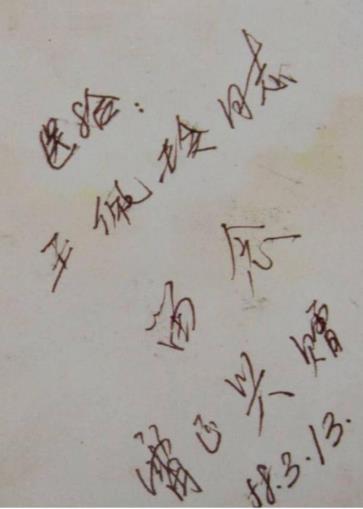 送给:
王佩玲同志
留念
兴赠
58.3.13.